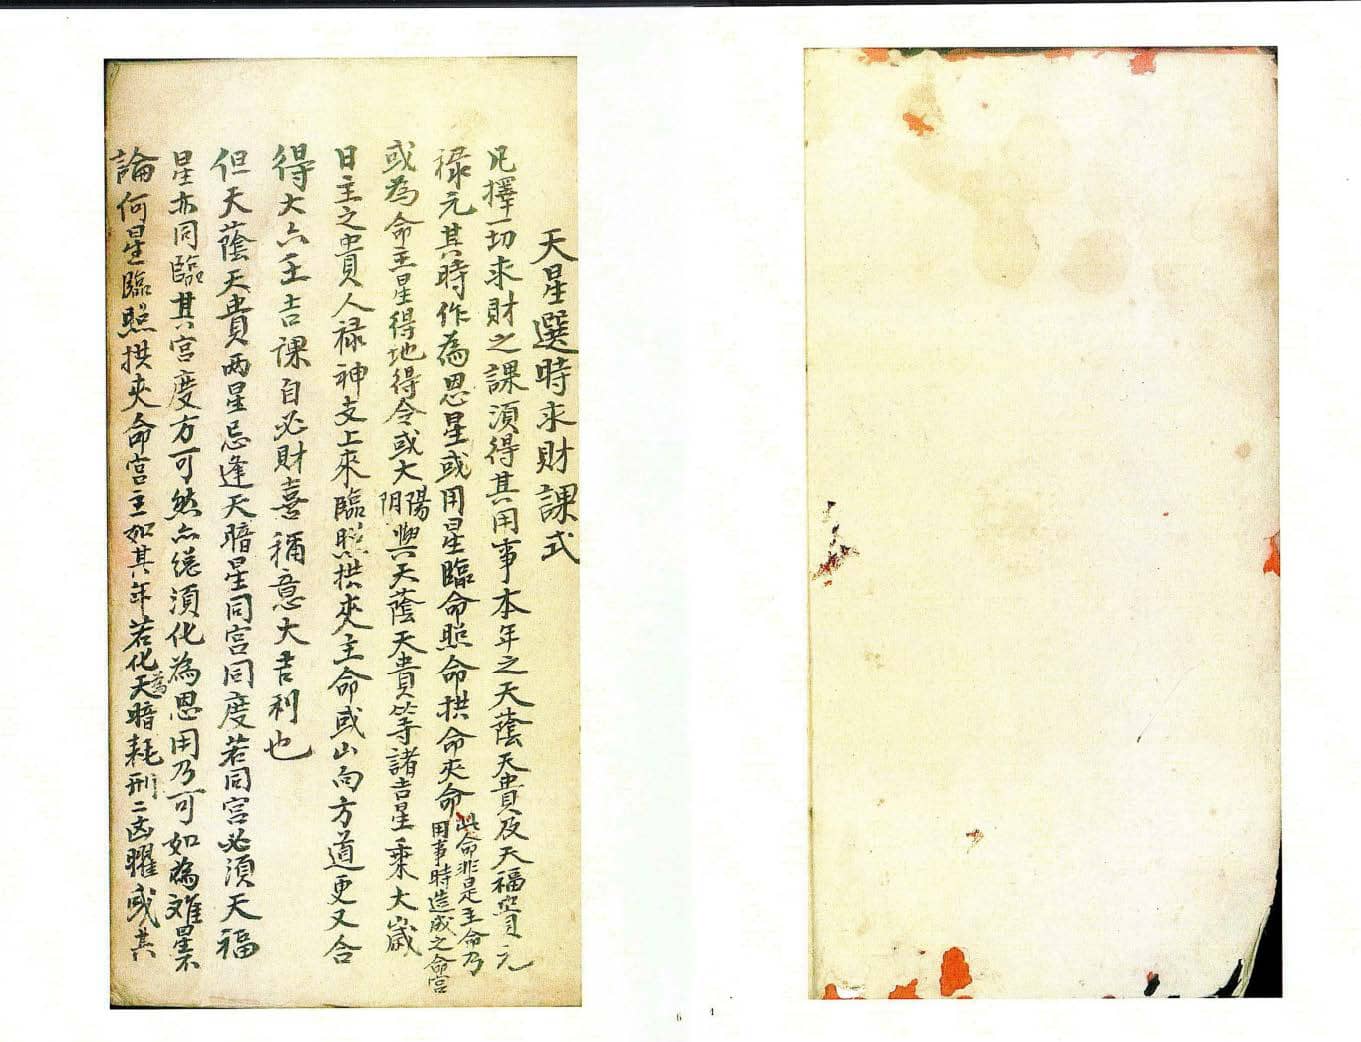 天星選時求財課式
凡擇一切求財之課須得其用事本年之天蔭天貴及天福官元
祿元其時作為恩星或用星臨命照命拱命夾命此命非是主命乃用事時造成之命宮
或為命主星得地得令或大陽阴與天蔭天貴等諸吉星乘大歲
日主之貴人祿神支上來臨照拱夾主命或山向方道更又合
得大六壬吉課自必財喜稱意大吉利也
但天蔭天貴两星忌逢天暗星同宮同度若同宮必須天福
星亦同臨其宮度方可然亦總須化為恩用乃可如為难星不
論何星臨照拱夾命宮主如其年若化為天暗耗刑二凶曜或其
6
4